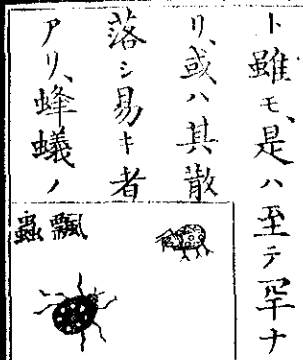 ト雖モ、是ハ至テ罕ナ
リ、或ハ其散
落シ易キ者
アリ、蜂蟻ノ
瓢蟲